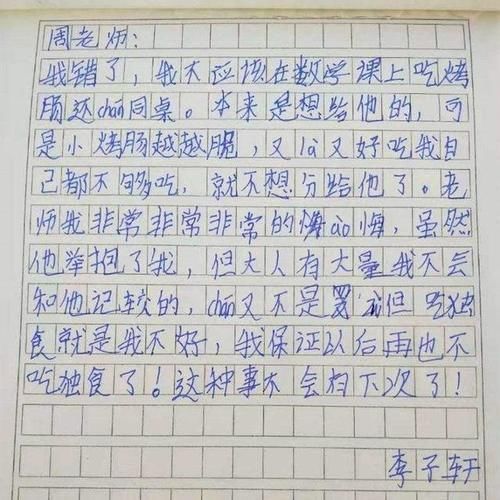 周老师：
我错了，我不应该在数学课上吃烤
肠还chán同桌。本来是想给他的，可
是小烤肠越越脆，又là又好吃我自
己都不够吃，就不想分给他了。老
师我非常非常非常的悔ào悔，虽然
他举抱了我，但大人有大量我不会
和他记较的，chán又不是罢 但吃独
食就是我不好，我保证以后再也不
吃独食了！这种事不会有下次了！
李子轩